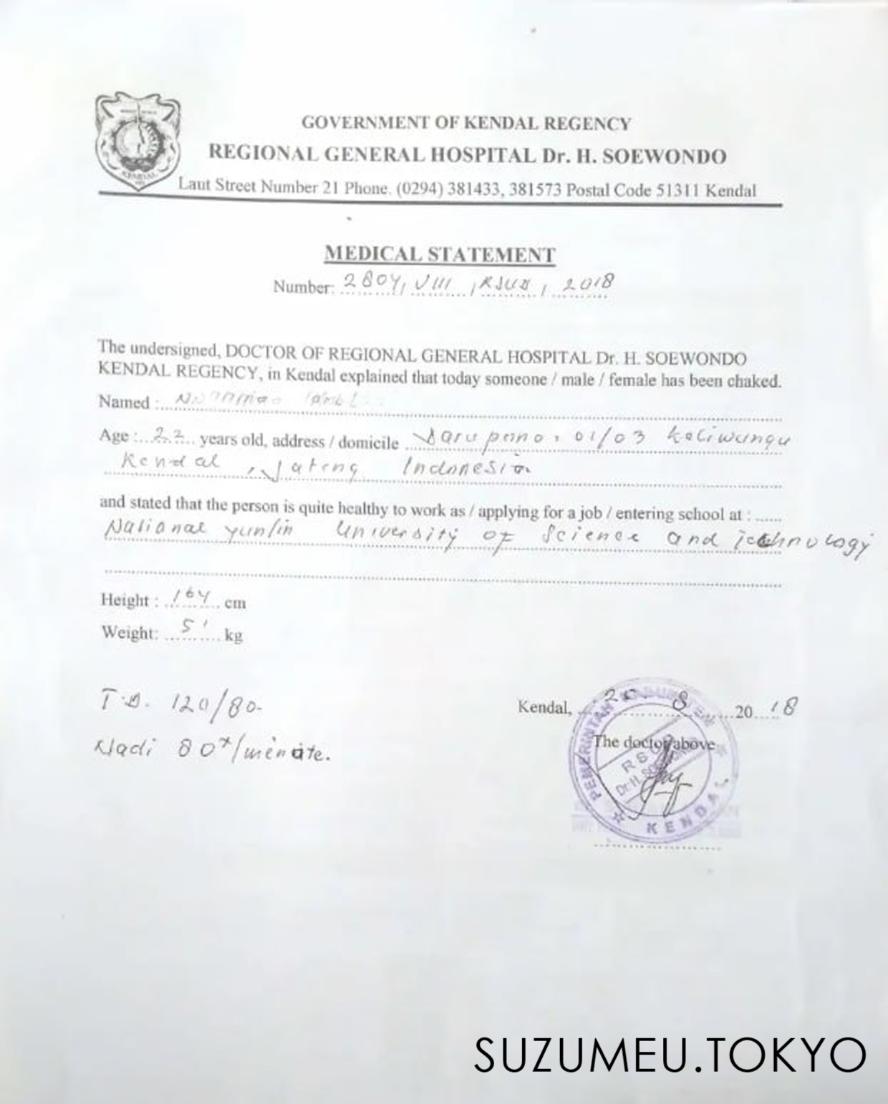 GOVERNMENT OF KENDAL REGENCY
REGIONAL GENERAL HOSPITAL Dr. H. SOEWONDO
Laut Street Number 21 Phone. (0294) 381433, 381573 Postal Code 51311 Kendal
KENDAL
MEDICAL STATEMENT
Number: 2804, VIII, RSUD, 2018
The undersigned, DOCTOR OF REGIONAL GENERAL HOSPITAL Dr. H. SOEWONDO
KENDAL REGENCY, in Kendal explained that today someone / male / female has been chaked.
Named :
Age : 22 years old, address / domicile 01/03 Kaliwungu
Kendal, Jateng Indonesia
and stated that the person is quite healthy to work as / applying for a job / entering school at :
National yunlin University of Science and Technology
Height : 164 cm
Weight: 51 kg
T.D. 120/80
Nadi 80x/menute.
Kendal, 20 8 2018
The doctor above
PEMERINTAH KABUPATEN
RSUD
Dr. H. SOEWONDO
KENDAL
SUZUMEU.TOKYO